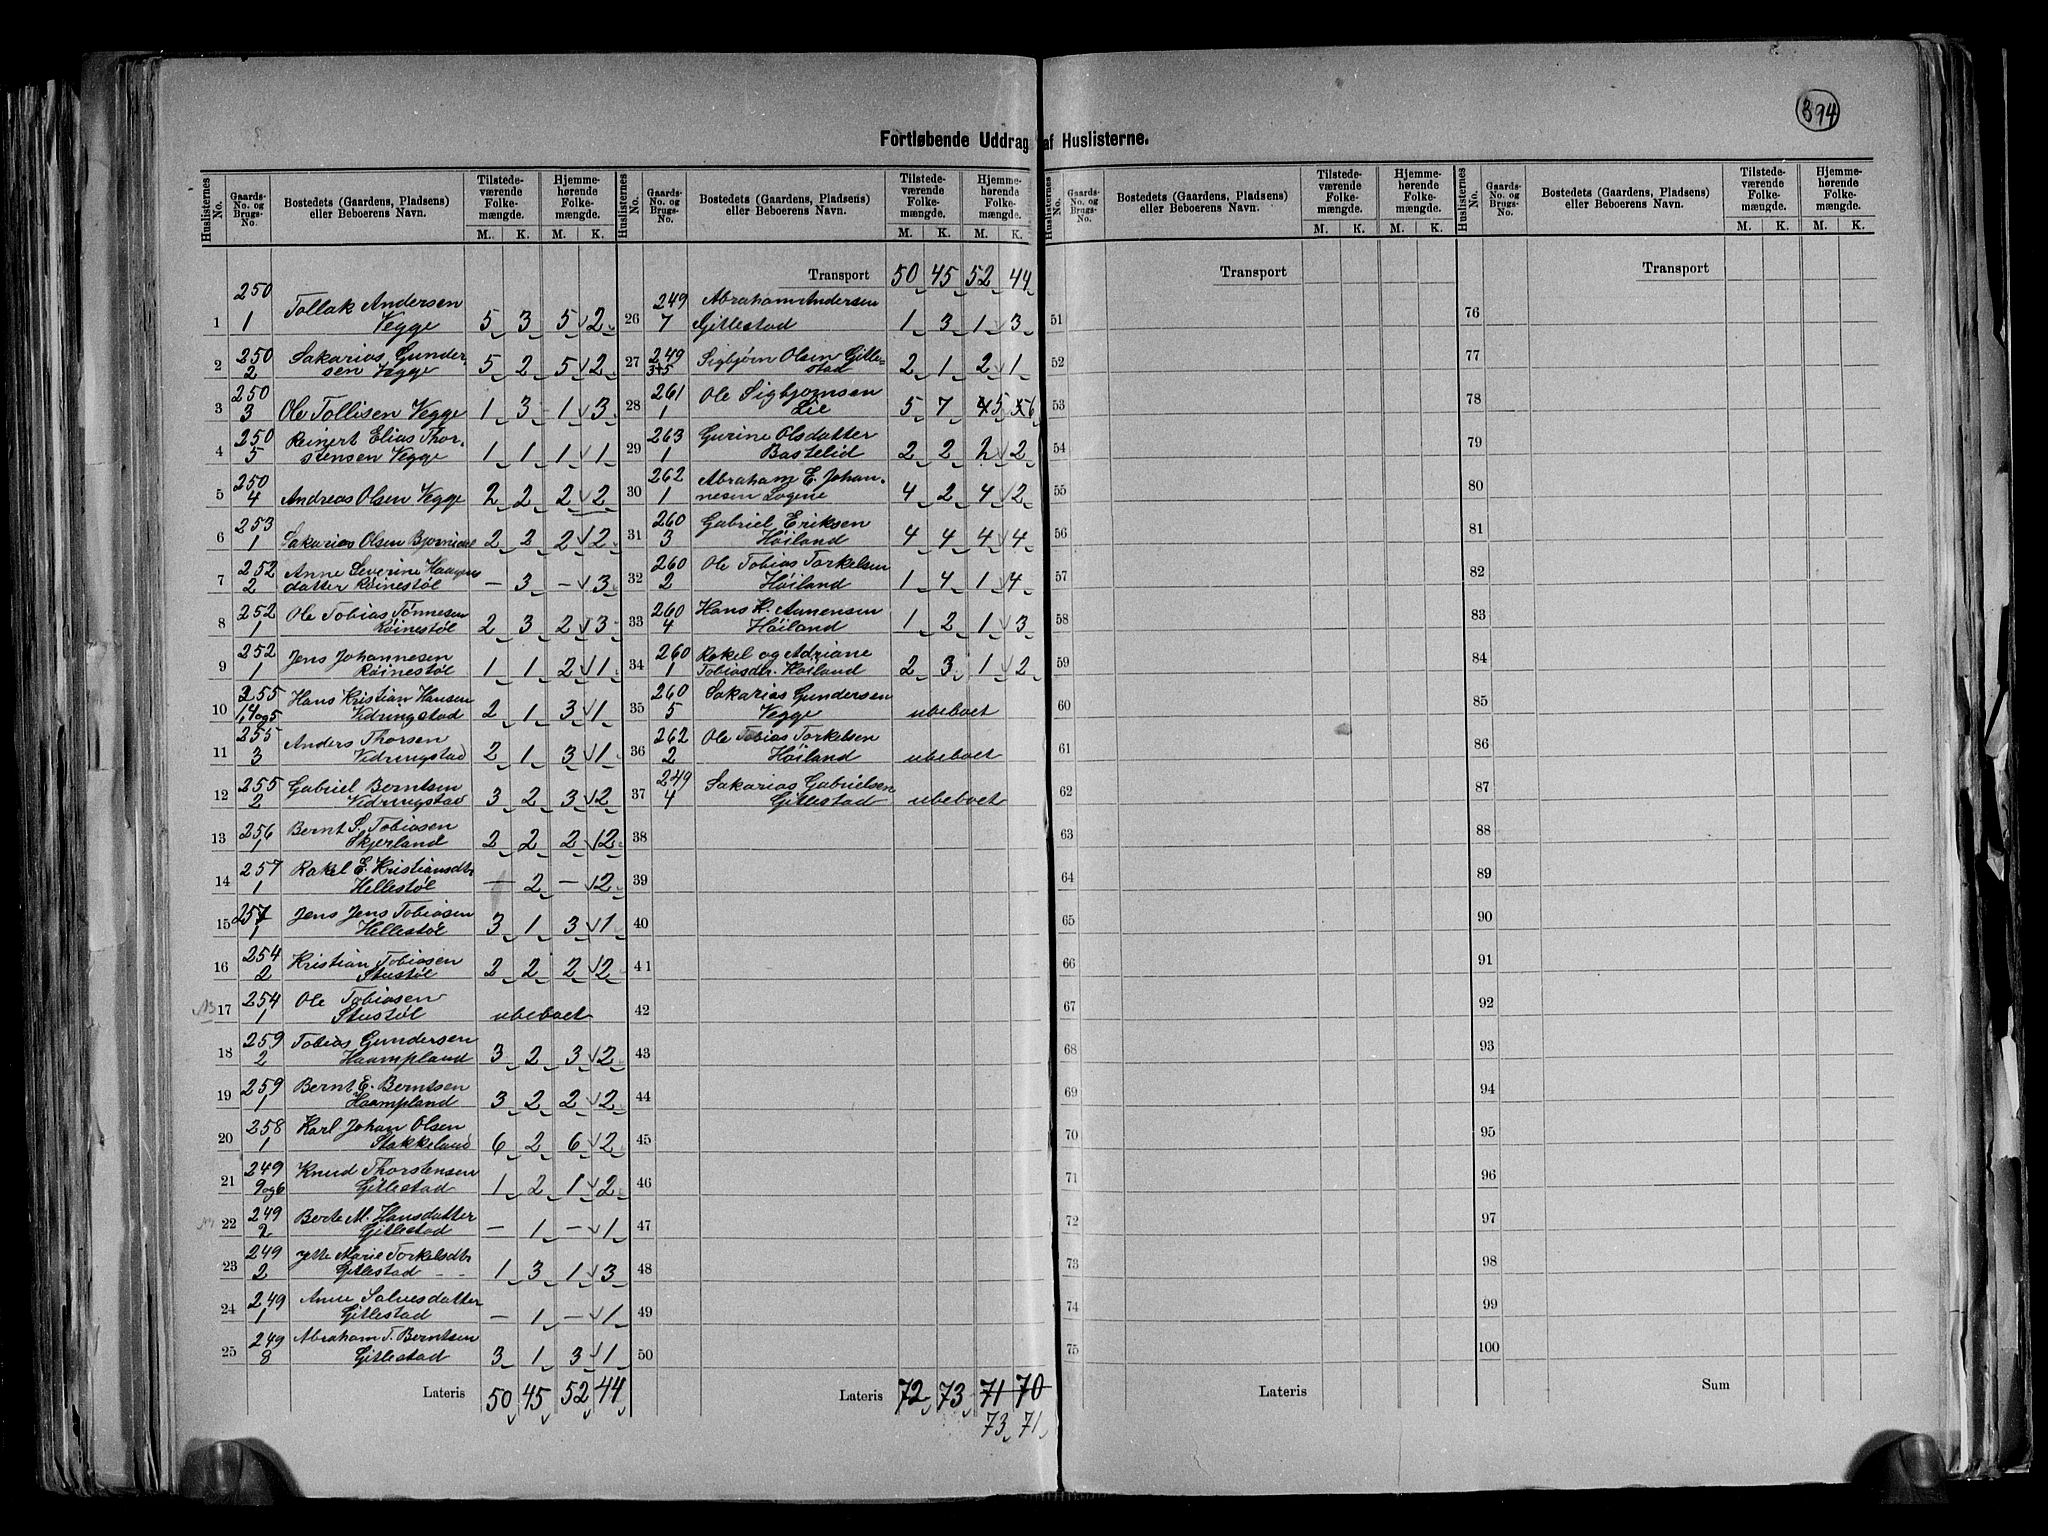 394
Fortløbende Uddrag af Huslisterne.
Huslisternes No. Gaards-No. og Brugs-No. Bostedets (Gaardens, Pladsens) eller Beboerens Navn. Tilstedeværende Folkemængde. M. K. Hjemmehørende Folkemængde. M. K.
1 250 1 Tollak Andersen Vegge 5 3 5 2
2 250 2 Sakarias Gundersen Vegge 5 2 5 2
3 250 3 Ole Tollisen Vegge 1 3 1 3
4 250 5 Reinert Elias Thorstensen Vegge 1 1 1 1
5 250 4 Andreas Olsen Vegge 2 2 2 2
6 253 1 Sakarias Olsen 2 2 2 2
7 252 2 Anne Severine datter Röinestöl — 3 — 3
8 252 1 Ole Tobias Tönnesen Röinestöl 2 3 2 3
9 252 1 Jens Johannesen Röinestöl 1 1 2 1
10 255 1,4 og 5 Hans Kristian Hansen Vidringstad 2 1 3 1
11 255 3 Anders Thorsen Vidringstad 2 1 3 1
12 255 2 Gabriel Berntsen Vidringstad 3 2 3 2
13 256 1 Bernt S. Tobiasen Skjerland 2 2 2 2
14 257 1 Rakel E. Kristiansdtr Hellestöl — 2 — 2
15 257 1 Jens Jens Tobiasen Hellestöl 3 1 3 1
16 254 2 Kristian Tobiasen Stustöl 2 2 2 2
17 254 1 Ole Tobiasen Stustöl ubeboet
18 259 2 Tobias Gundersen Haampland 3 2 3 2
19 259 1 Bernt E. Berntsen Haampland 3 2 2 2
20 258 1 Karl Johan Olsen Stakkeland 6 2 6 2
21 249 9 og 6 Knud Thorstensen Gitlestad 1 2 1 2
22 249 2 Berte M. Hansdatter Gitlestad — 1 — 1
23 249 2 Marie Torkelsdtr Gitlestad 1 3 1 3
24 249 1 Anne Salvesdatter Gitlestad — 1 — 1
25 249 8 Abraham T. Berntsen Gitlestad 3 1 3 1
Lateris 50 45 52 44
Huslisternes No. Gaards-No. og Brugs-No. Bostedets (Gaardens, Pladsens) eller Beboerens Navn. Tilstedeværende Folkemængde. M. K. Hjemmehørende Folkemængde. M. K.
Transport 50 45 52 44
26 249 7 Abraham Andersen Gitlestad 1 3 1 3
27 249 3+5 Sigbjørn Olsen Gitlestad 2 1 2 1
28 261 1 Ole Sigbjørnsen Lie 5 7 4 5 5 6
29 263 1 Gurine Olsdatter Bastelid 2 2 2 2
30 262 1 Abraham E. Johannesen Logene 4 2 4 2
31 260 3 Gabriel Eriksen Höiland 4 4 4 4
32 260 2 Ole Tobias Torkelsen Höiland 1 4 1 4
33 260 4 Hans K. Höiland 1 2 1 3
34 260 1 Rakel og Adriane Tobiasdtr. Höiland 2 3 1 2
35 260 5 Sakarias Gundersen Vegge ubeboet
36 262 2 Ole Tobias Torkelsen Höiland ubeboet
37 249 4 Sakarias Gabrielsen Gitlestad ubeboet
38
39
40
41
42
43
44
45
46
47
48
49
50
Lateris 72 73 71 70
73 71
Huslisternes No. Gaards-No. og Brugs-No. Bostedets (Gaardens, Pladsens) eller Beboerens Navn. Tilstedeværende Folkemængde. M. K. Hjemmehørende Folkemængde. M. K.
Transport
51
52
53
54
55
56
57
58
59
60
61
62
63
64
65
66
67
68
69
70
71
72
73
74
75
Lateris
Huslisternes No. Gaards-No. og Brugs-No. Bostedets (Gaardens, Pladsens) eller Beboerens Navn. Tilstedeværende Folkemængde. M. K. Hjemmehørende Folkemængde. M. K.
Transport
76
77
78
79
80
81
82
83
84
85
86
87
88
89
90
91
92
93
94
95
96
97
98
99
100
Sum